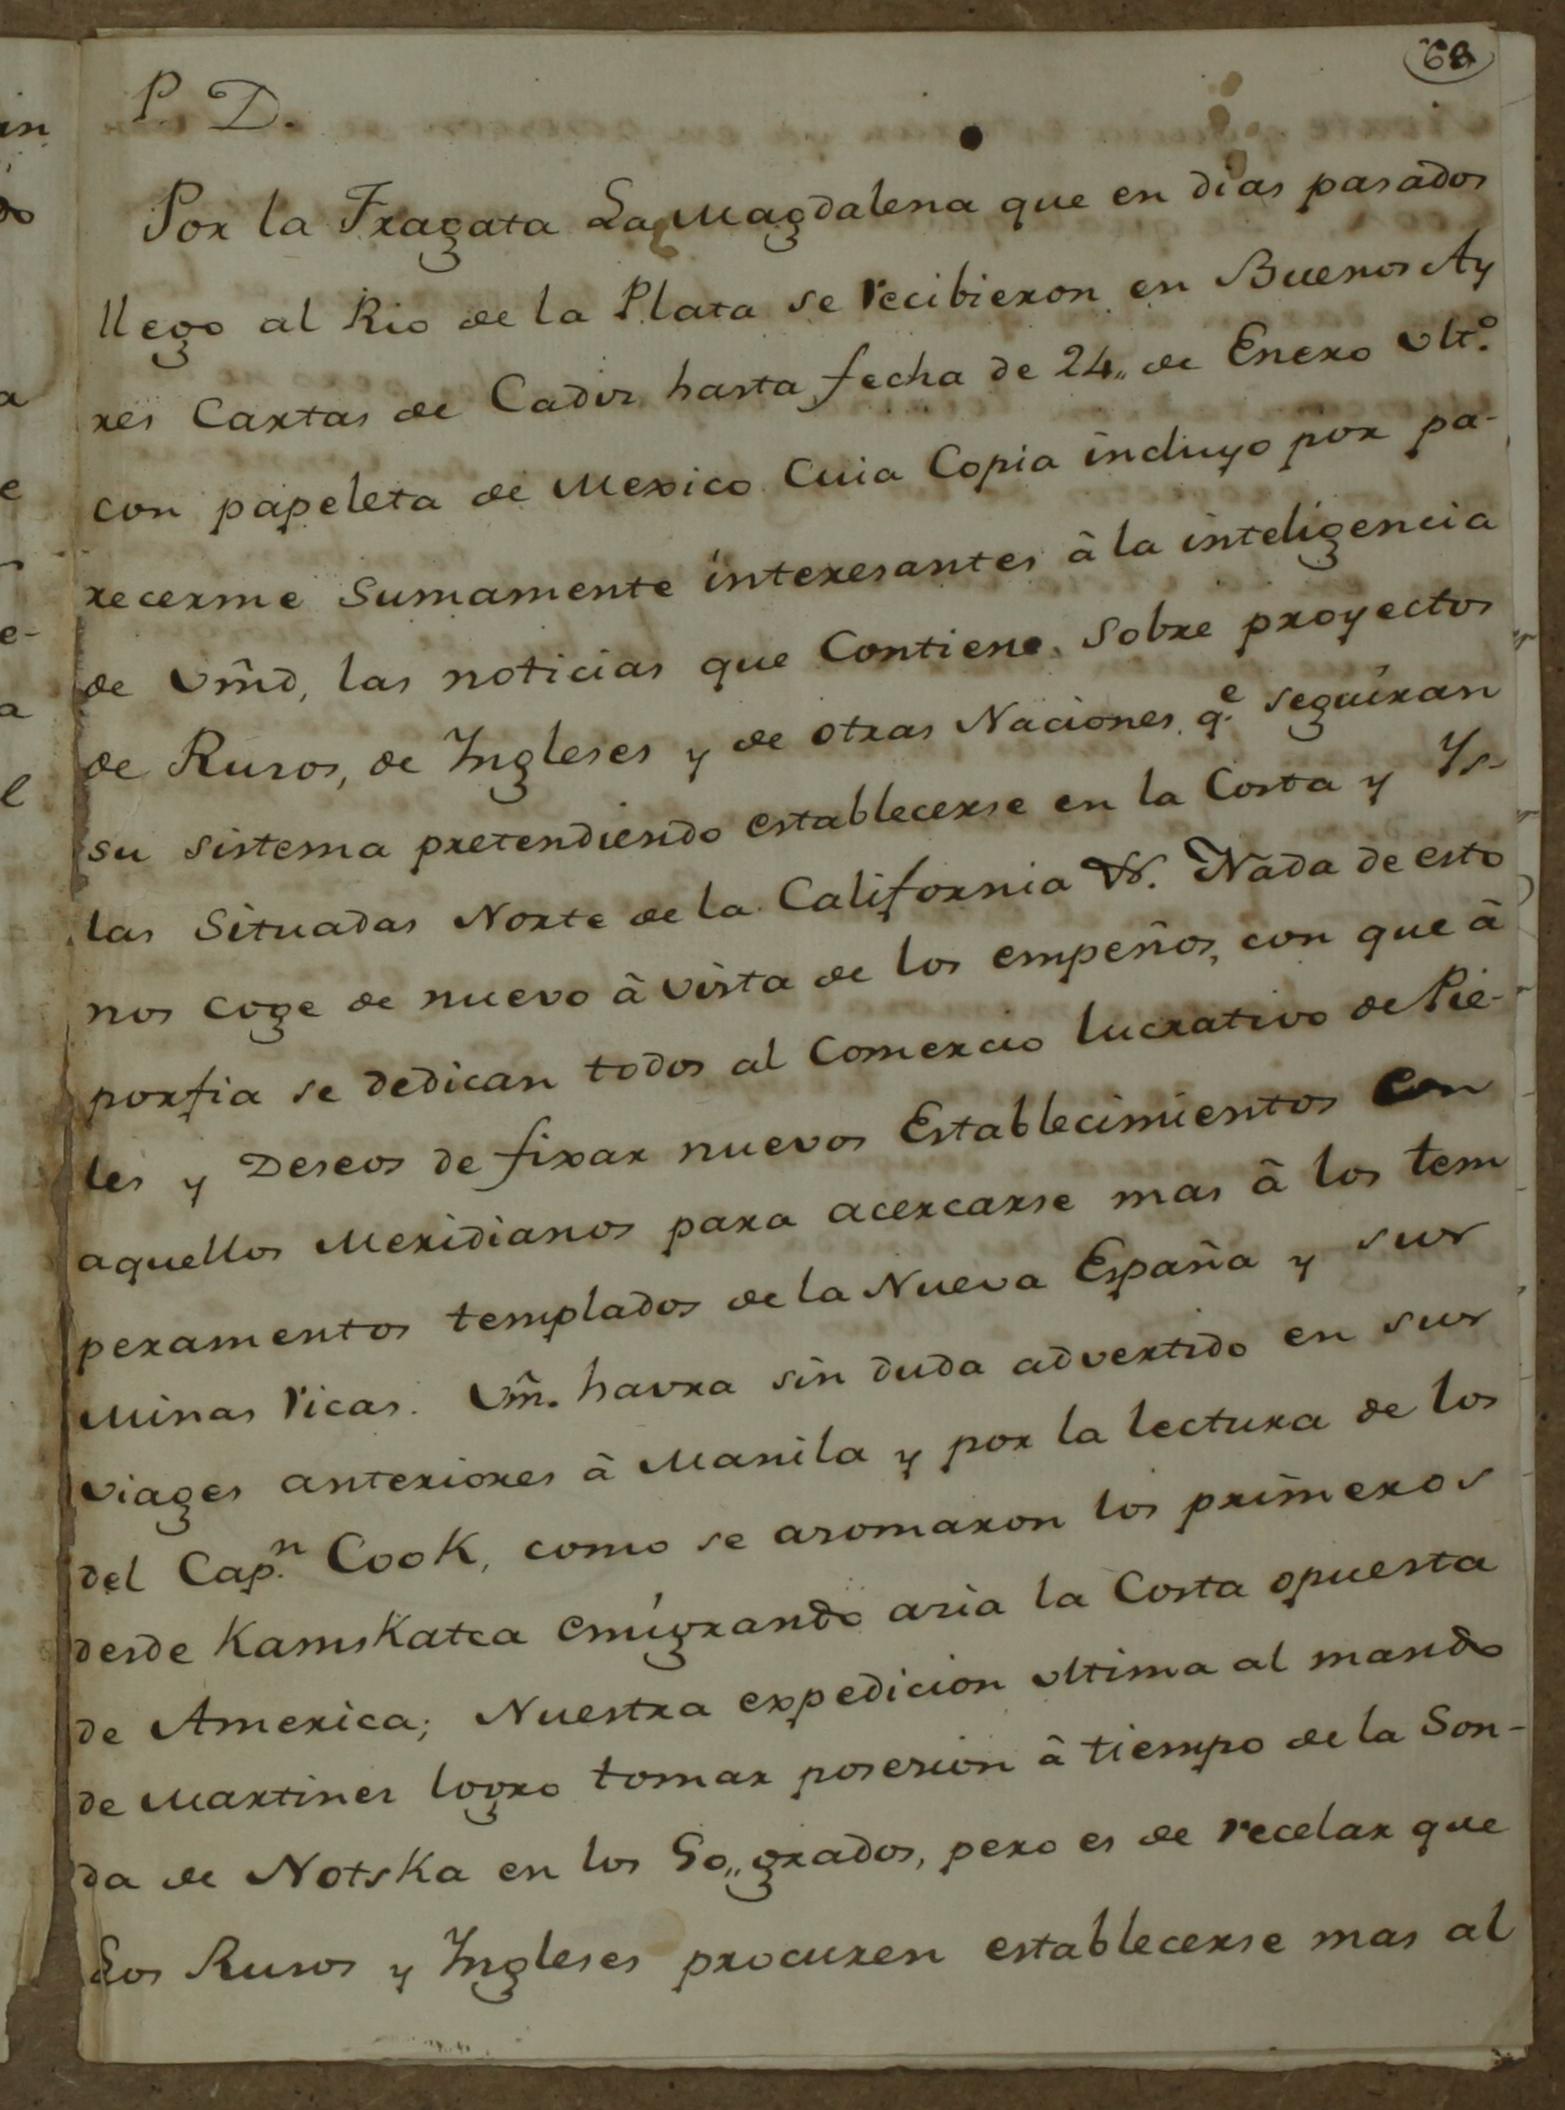 68
P. D.
Por la Fragata La Magdalena que en dias pasados
llego al Rio de la Plata se recibieron en Buenos Ay
res Cartas de Cadiz hasta fecha de 24,, de Enero ult.º
con papeleta de Mexico Cuia Copia incluyo por pa-
recerme Sumamente interesantes â la inteligencia
de Vm̃d, las noticias que Contiene. Sobre proyectos
de Rusos, de Ingleses y de otras Naciones q.e seguiran
su sistema pretendiendo establecerse en la Costa y Ys-
las Situadas Norte de la California &. Nada de esto
nos coge de nuevo â vista de los empeños, con que â
porfia se dedican todos al Comercio lucrativo de Pie-
les y Deseos de fixar nuevos Establecimientos con
aquellos Meridianos para acercarse mas â los tem
peramentos templados de la Nueva España y sus
Minas ricas. Vm̃. havra sin duda advertido en sus
viages anteriores â Manila y por la lectura de los
del Cap.n Cook, como se asomaron los primeros
desde Kamskatca emigrando azia la Costa opuesta
de America; Nuestra expedicion ultima al mando
de Martinez logro tomar posesion â tiempo de la Son-
da de Notska en los 50,, grados, pero es de recelar que
Los Rusos y Ingleses procuren establecerse mas al